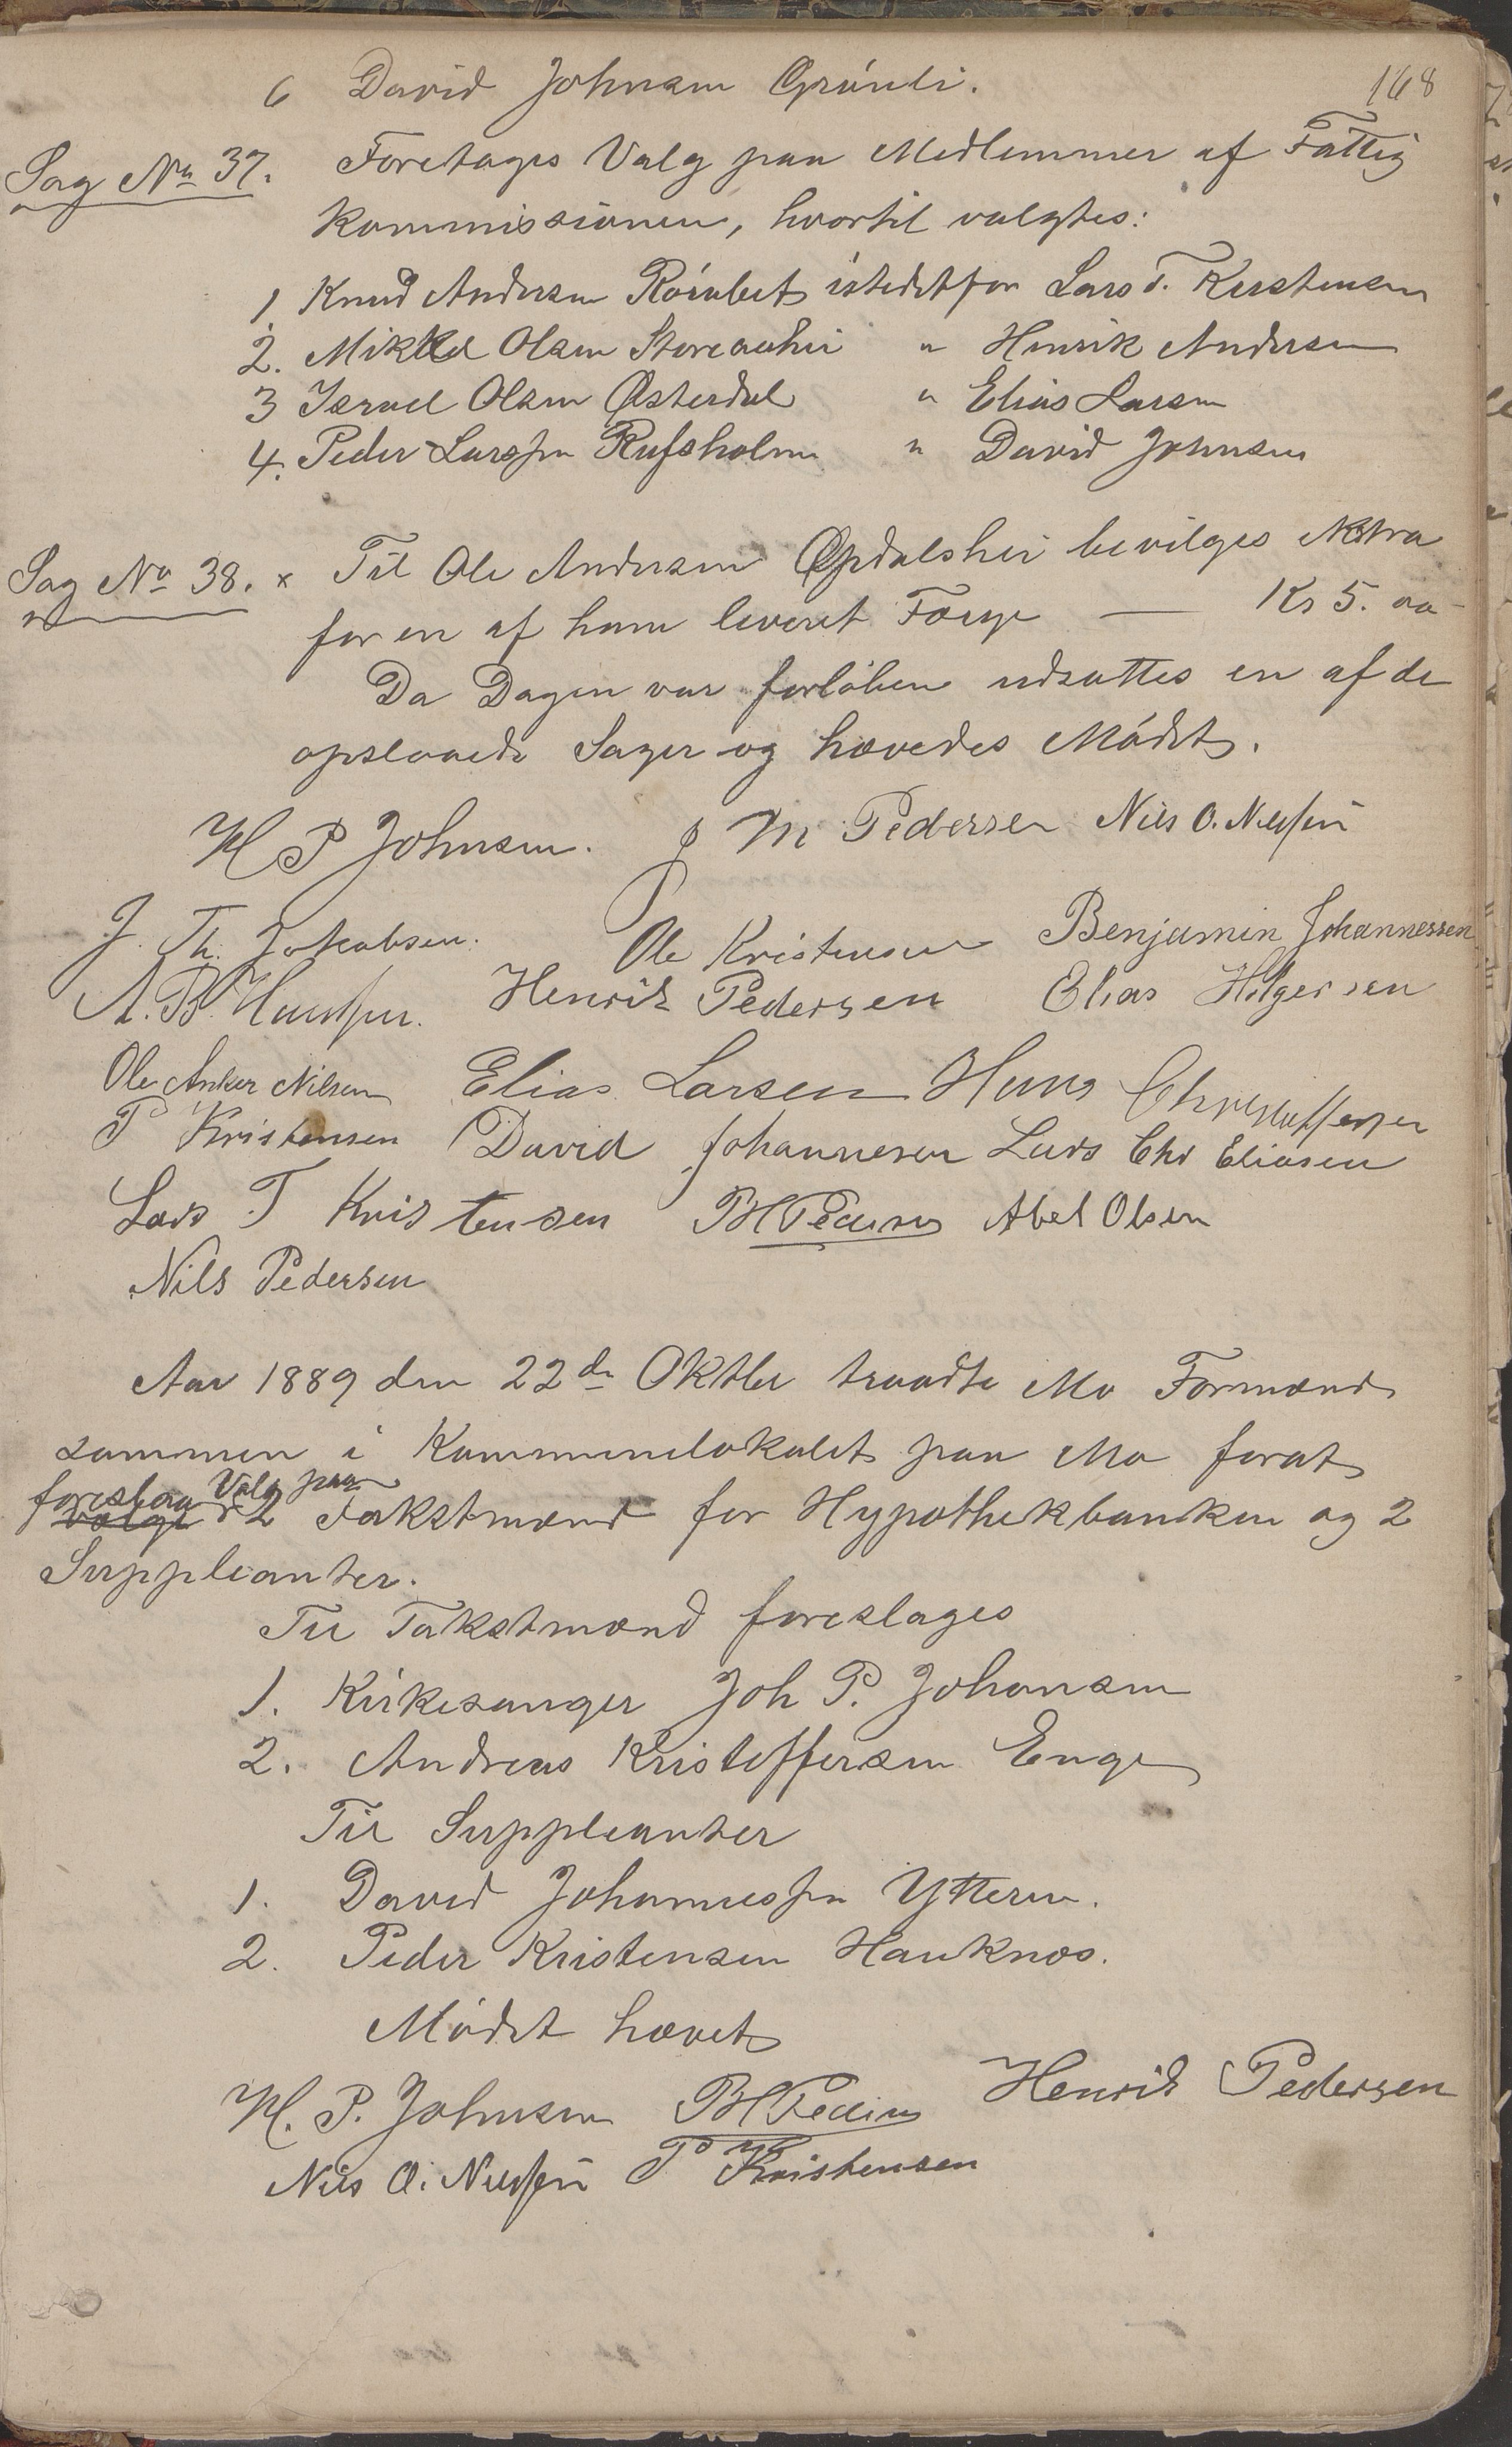 168
6 David Johnsen Grønli.
Sag No 37. Foretages Valg paa Medlemmer af Fattig
kommissionen, hvortil valgtes:
1 Knud Andersen istedetfor Lars T. Kristensen
2. Mikkel Olsen " Henrik Andersen
3 Israel Olsen Østerdal " Elias Larsen
4. Peder Larssen Rufsholm " David Johnsen
Sag No 38. x Til Ole Andersen Opdalshei bevilges extra
for en af ham leveret Færge — Kr 5. oo
Da Dagen var forløben udsattes en af de
opslaaede Sager og hævedes Mødet.
H P Johnsen. J M Pedersen Nils O. Nilssen
J. Th. Jakobsen. Ole Kristensen Benjamin Johannessen
A. B. Henrik Pedersen Elias Hilgersen
Ole Anker Nilsen Elias Larsen Hans Christoffersen
P Kristensen David Johannesen Lars Chr Eliasen
Lars T Kristensen PHPedersen Abel Olsen
Nils Pedersen
Aar 1889 den 22de Oktbr traadte Mo Formænd
sammen i Kommunelokalet paa Mo forat
foreslaa Valg paa
vælge 2 Takstmænd for Hypothekbanken og 2
Suppleanter.
Til Takstmænd foreslages
1. Kirkesanger Joh P. Johansen
2. Andreas Kristoffersen Enge
Til Suppleanter
1. David Johannessen Ytteren.
2. Peder Kristensen Hauknæs.
Mødet hævet
H. P. Johnsen PHPedersen Henrik Pedersen
Nils O. Nilssen P Kristensen